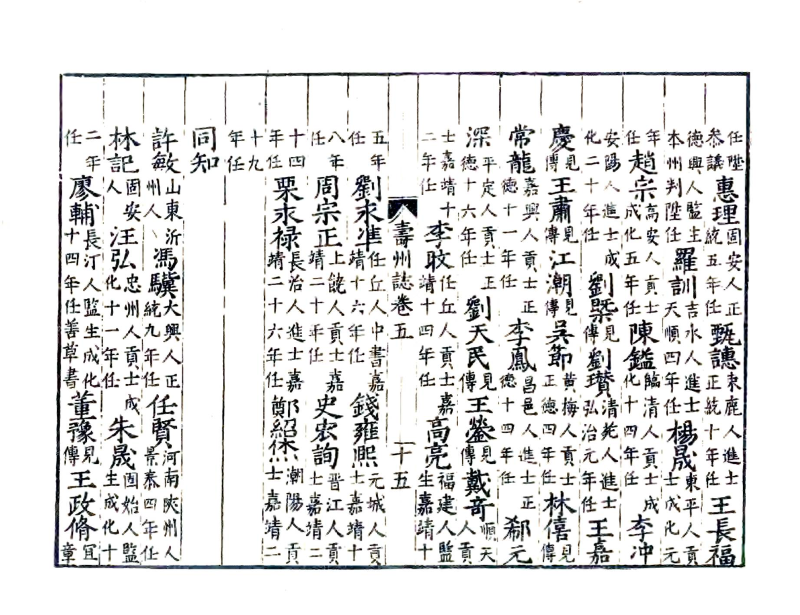 任陞參議惠理固安人正統五年任甄譓束鹿人進士正統十年任王長福
德興人監生本州判陞任羅訓吉水人進士天順四年任楊晟東平人貢士成化元
年任趙宗高安人貢士成化五年任陳鑑臨清人貢士成化十四年任李冲
安陽人進士成化二十年任劉槩見傳劉瓚清苑人進士弘治元年任王嘉
慶見傳王肅見傳江潮見傳吳節黃梅人貢士正德四年任林僖見傳
常龍嘉興人貢士正德十一年任李鳳昌邑人進士正德十四年任郄元
深平定人貢士正德十六年任劉天民見傳王鎣見傳戴奇順天人貢
士嘉靖十二年任李旼任丘人貢士嘉靖十四年任高亮福建人監生嘉靖十
壽州誌卷五 十五
五年任劉永準任丘人中書嘉靖十六年任錢雍熙元城人貢士嘉靖十
八年任周宗正上饒人貢士嘉靖二十年任史宏詢晉江人貢士嘉靖二
十四年任栗永禄長治人進士嘉靖二十六年任鄭紹潮陽人貢士嘉靖二
十九年任
同知
許敏山東沂州人馮驥大興人正統九年任任賢河南陝州人景泰四年任
林記固安人汪弘忠州人貢士成化十一年任朱晟固始人監生成化十
二年任廖輔長汀人監生成化十四年任善草書董豫見傳王政脩宜章